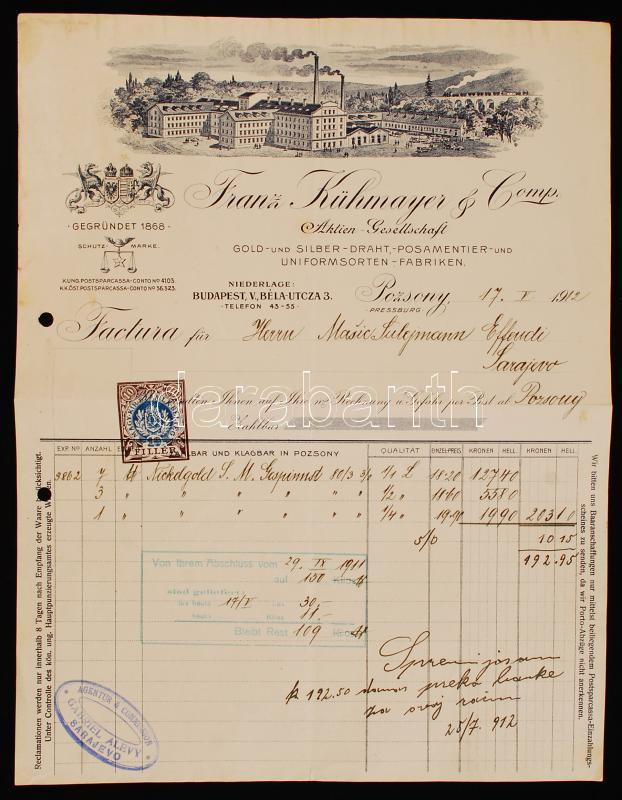 Franz Kühmayer & Comp.
Aktien-Gesellschaft
GOLD-UND SILBER-DRAHT,-POSAMENTIER-UND
UNIFORMSORTEN-FABRIKEN.
·GEGRÜNDET 1868·
SCHUTZ MARKE.
K.UNG. POSTSPARCASSA-CONTO Nº 4103.
K.K.ÖST. POSTSPARCASSA-CONTO Nº 36.323.
NIEDERLAGE:
BUDAPEST, V., BÉLA-UTCZA 3.
·TELEFON 43-55·
Pozsony, 17. V. 1912
-PRESSBURG-
Factura für Herrn Mašic Sulejmann Effendi
Sarajevo
Ihnen auf Ihre werte Rechnung u. Gefahr per Post ab Pozsony
Zahlbar
10 FILLER
darabanth
EXP. Nº ANZAHL ZAHLBAR UND KLAGBAR IN POZSONY QUALITÄT EINZELPREIS KRONEN HELL. KRONEN HELL.
3862 7 tt Nickdgold S. M. Gespinnst 80/3 3/0 1/1 L 18·20 127 40
3 " " " " " " 1/2 " 18·60 55 80
1 " " " " " " 1/4 " 19.90 19 90 203 10
5/0 10 15
192.95
Von Ihrem Abschluss vom 29. IX 1911
auf 150 Kilos
sind geliefert:
bis heute 17/V 30.
heute 11.-
Bleibt Rest 109 Kilos
k 192.50 danas preko banke
za svoj račun
25/7. 912
AGENTUR & COMMISSION
GABRIEL ALEVY
SARAJEVO
Reclamationen werden nur innerhalb 8 Tagen nach Empfang der Waare berücksichtigt.
Unter Controlle des kön. ung. Hauptpunzierungsamtes erzeugte Waare.
Wir bitten uns Baaranschaffungen nur mittelst beiliegendem Postsparcassa-Einzahlungs-
scheines zu senden, da wir Porto-Abzüge nicht anerkennen.